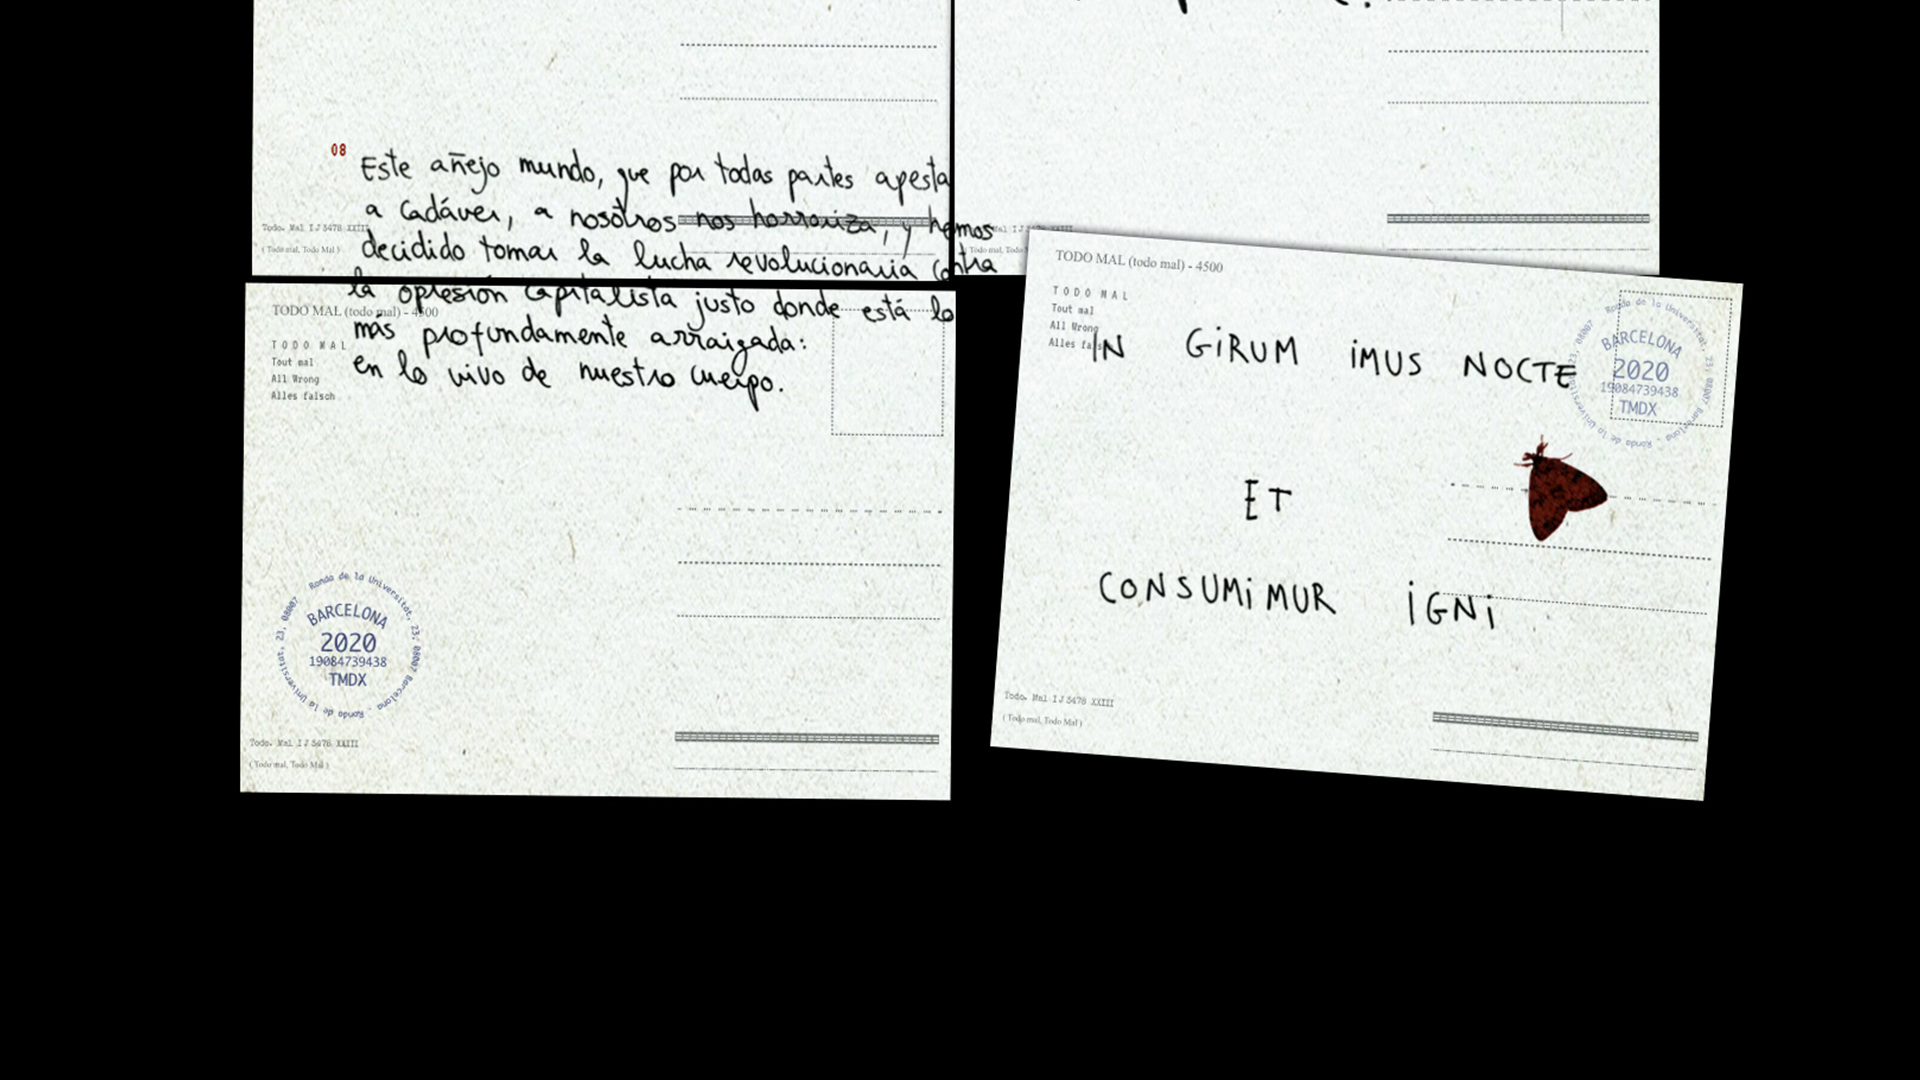 08
Este añejo mundo, que por todas partes apesta
a cadáver, a nosotros nos horroriza, y hemos
decidido tomar la lucha revolucionaria contra
la opresión capitalista justo donde está lo
más profundamente arraigada:
en lo vivo de nuestro cuerpo.
Todo. Mal IJ5478 XXIII
( Todo mal, Todo Mal )
TODO MAL (todo mal) - 4500
TODO MAL
Tout mal
All Wrong
Alles falsch
Ronda de la Universitat, 23, 08007 Barcelona
BARCELONA
2020
19084739438
TMDX
Todo. Mal IJ5478 XXIII
( Todo mal, Todo Mal )
TODO MAL (todo mal) - 4500
TODO MAL
Tout mal
All Wrong
Alles falsch
IN GIRUM IMUS NOCTE
ET
CONSUMIMUR IGNI
Ronda de la Universitat, 23, 08007 Barcelona
BARCELONA
2020
19084739438
TMDX
Todo. Mal IJ5478 XXIII
( Todo mal, Todo Mal )